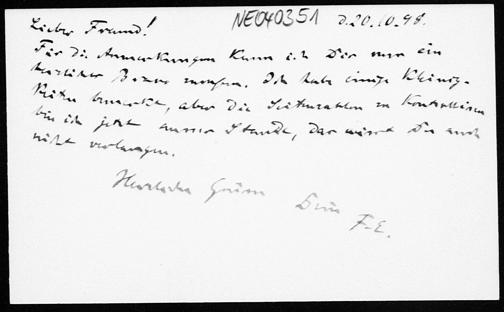 Lieber Freund! NE040351 d. 20.10.98.
Für die Anmerkungen kann ich Dir nur ein
herzliches Bravo zurufen. Ich habe einige Kleinig-
keiten bemerkt, aber die Seitenzahlen zu kontrollieren
bin ich jetzt ausser Stande, das wirst Du auch
nicht verlangen.
Herzliche Grüsse Dein
F. E.